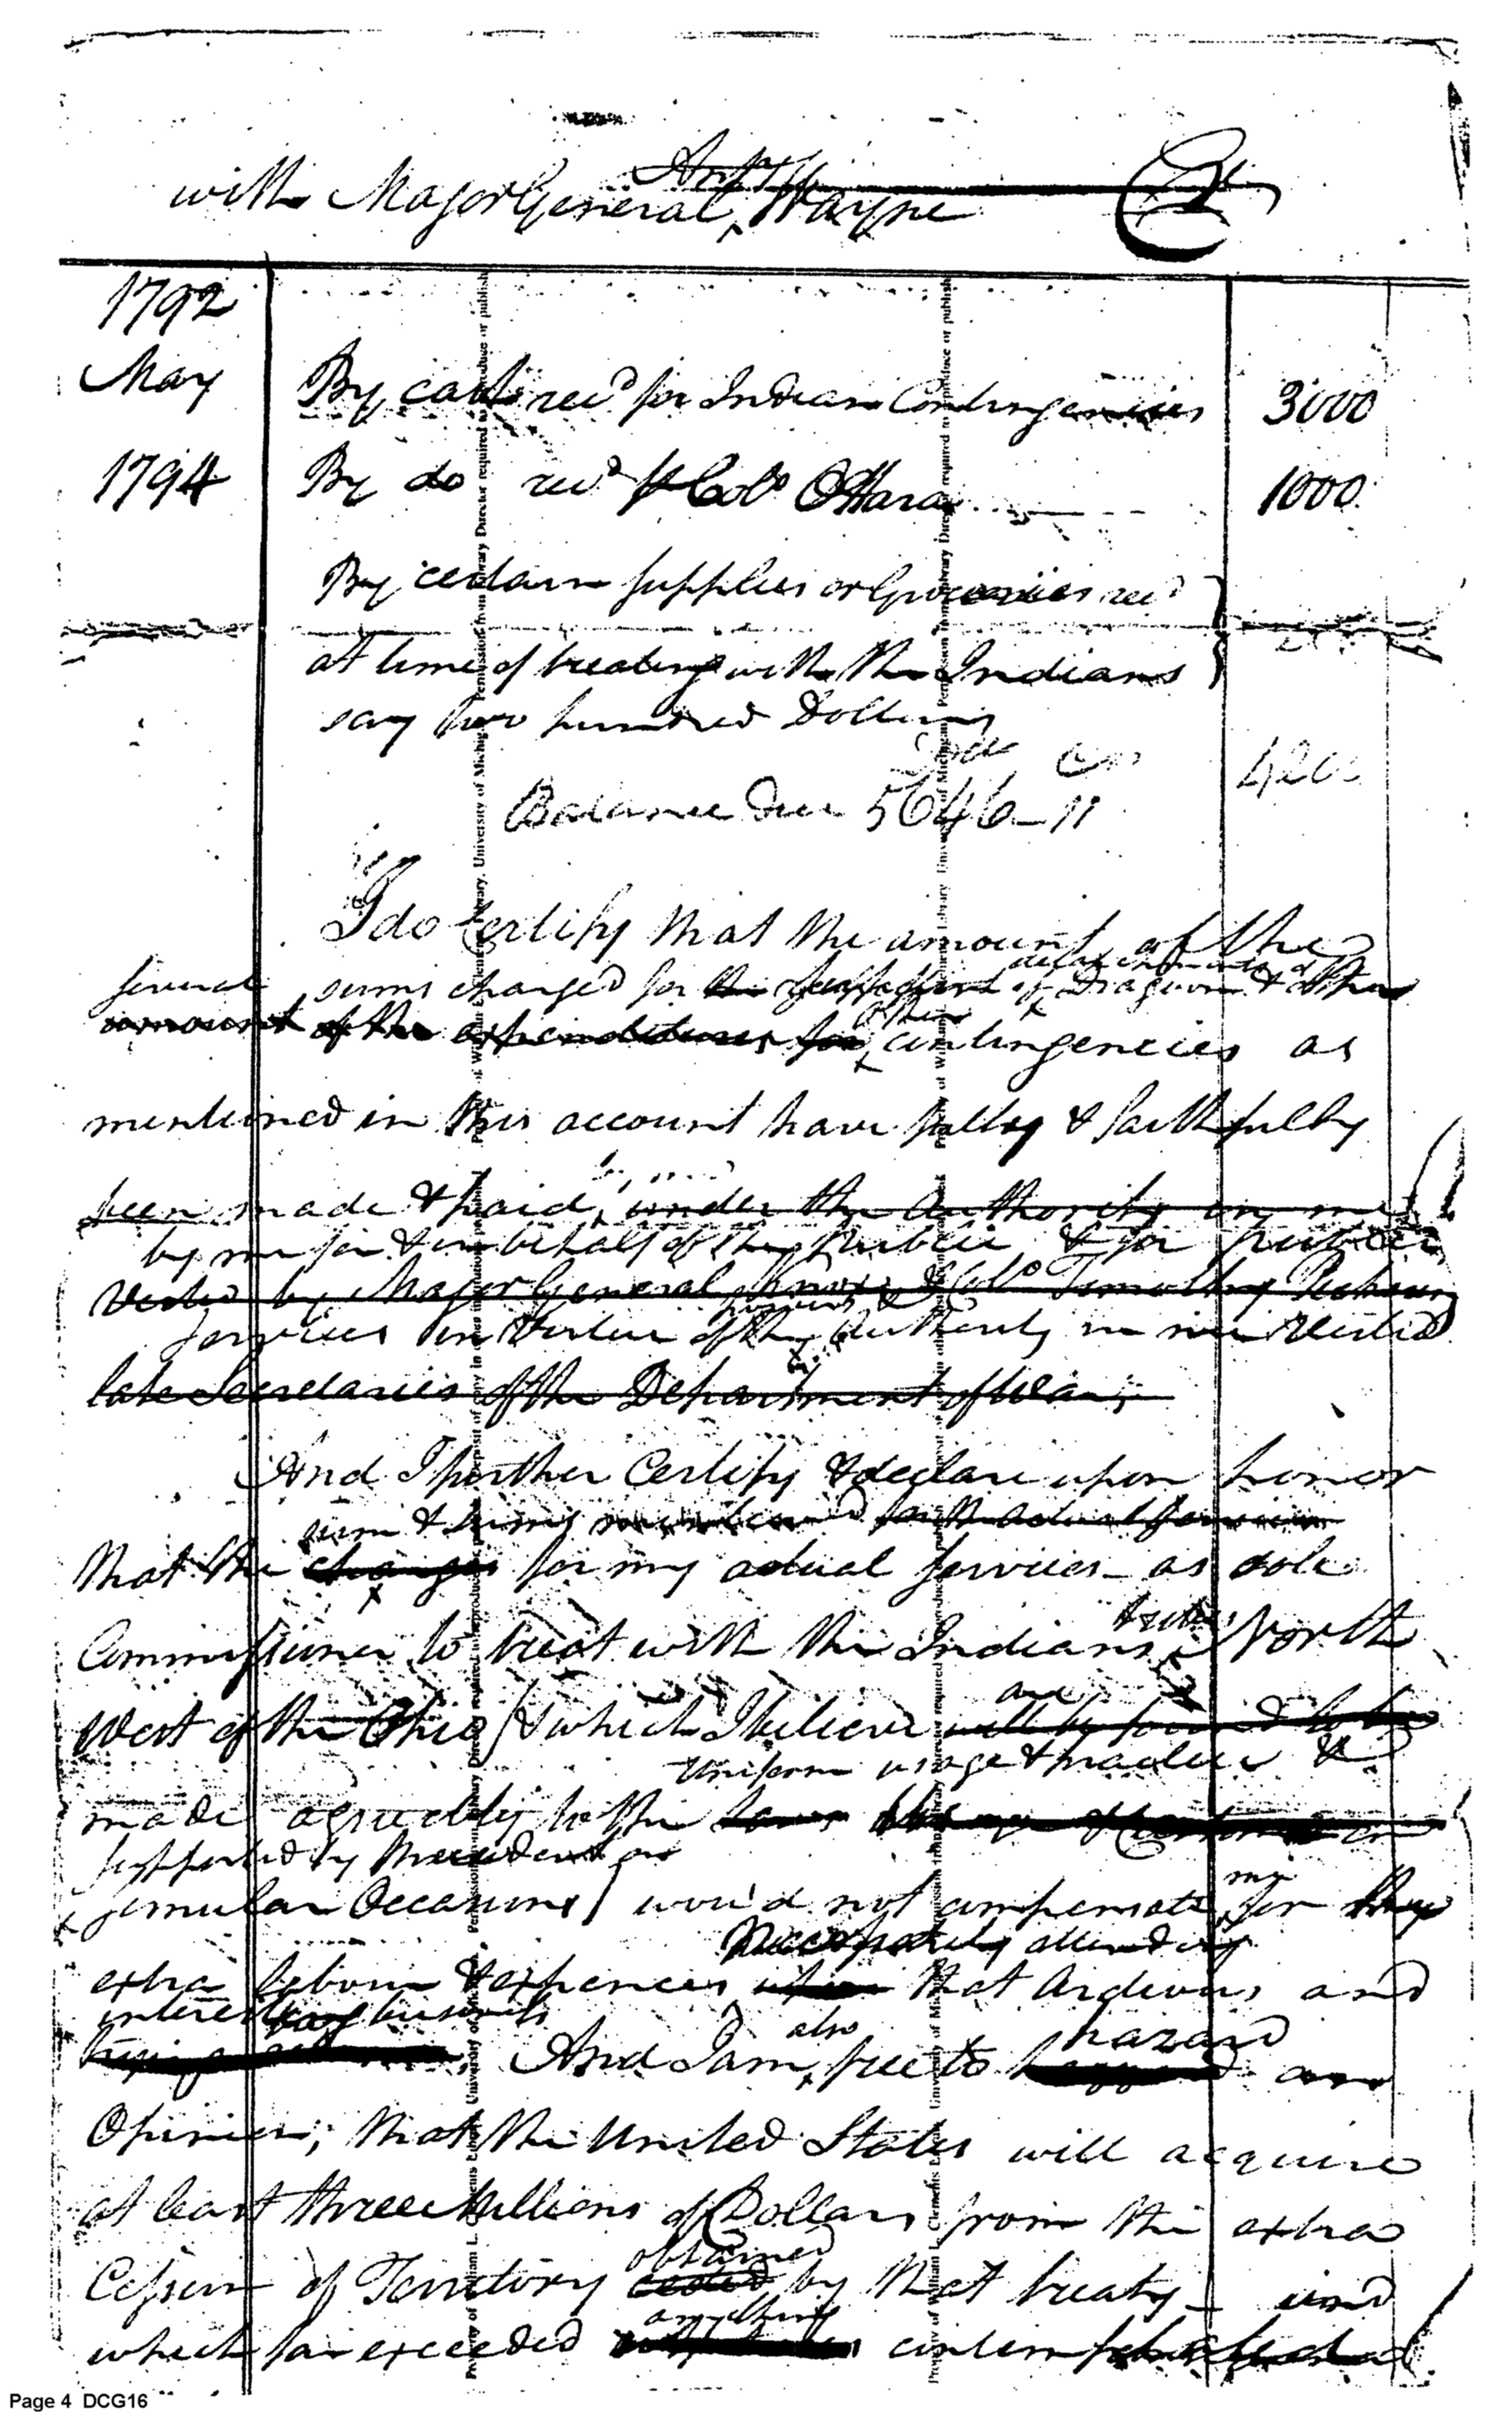 with Major General Anty Wayne
Cr
1792
May By cash recd for Indian Contingencies 3000
1794 By do recd pr Colo OHara 1000
By certain supplies or Groceries recd
at time of treating with the Indians
say two hundred Dollars
4200
Balance due 5646-11
I do Certify that the amount of the
several sums charged for the of Dragoons & other
amount of the expenditures for other contingencies as
mentioned in this account have fully & faithfully
been made & paid, under the authority in me
by me for & in behalf of the Public & for public
vested by Major General Knox & Colo Timothy Pickering
services in virtue of the powers & Authority in me vested
late Secretaries of the Department of War,
And I further Certify & declare upon honor
sum & sums
that the charges for my actual services as sole
Commissioner to treat with the Indians North
West of the Ohio (& which I believe are will be found to be
Uniform usage & practice &
made agreeably to the
supported by Precedent on
similar Occasions) wou'd not compensate me for the
Necessarily attending
extra labour & expences that Arduous and
interesting business
And I am also free to hazard an
Opinion; that the United States will acquire
at least three Millions of Dollars from the extra
obtained
Cession of Territory ceded by that treaty - and
anything
which far exceeded contemplated
Page 4 DCG16